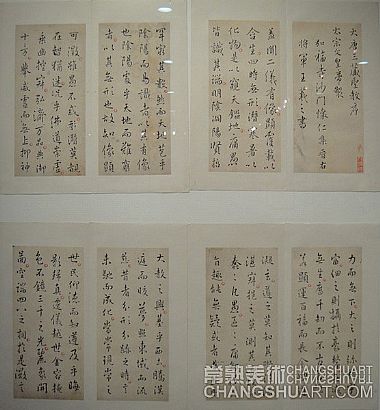 大唐三藏聖教序
太宗文皇帝製
弘福寺沙門懷仁集晉右
將軍王羲之書
蓋聞二儀有像顯覆載以
含生四時無形潛寒暑以
化物是以窺天鑑地庸愚
皆識其端明陰洞陽賢哲
罕窮其數然而天地苞乎
陰陽而易識者以其有像
也陰陽處乎天地而難窮
者以其無形也故知像顯
可徵雖愚不惑形潛莫覩
在智猶迷況乎佛道崇虛
乘幽控寂弘濟萬品典御
十方舉威靈而無上抑神
力而無下大之則彌於
宙細之則攝於毫釐
無生歷千劫而不古
若顯運百福而長今
凝玄遵之莫知其際
湛寂挹之莫測其源
蠢凡愚區區庸
旨趣能無疑惑者
大教之興基乎西土騰漢
庭而皎夢照東域而流
慈昔者分形分跡之時言
未馳而成化當常現常之
世民仰德而知遵及乎晦
影歸真遷儀越世金容掩
色不鏡三千之光麗象開
圖空端四八之相於是微言
常熟美術
CHANGSHUART
CHANGSHUART.COM